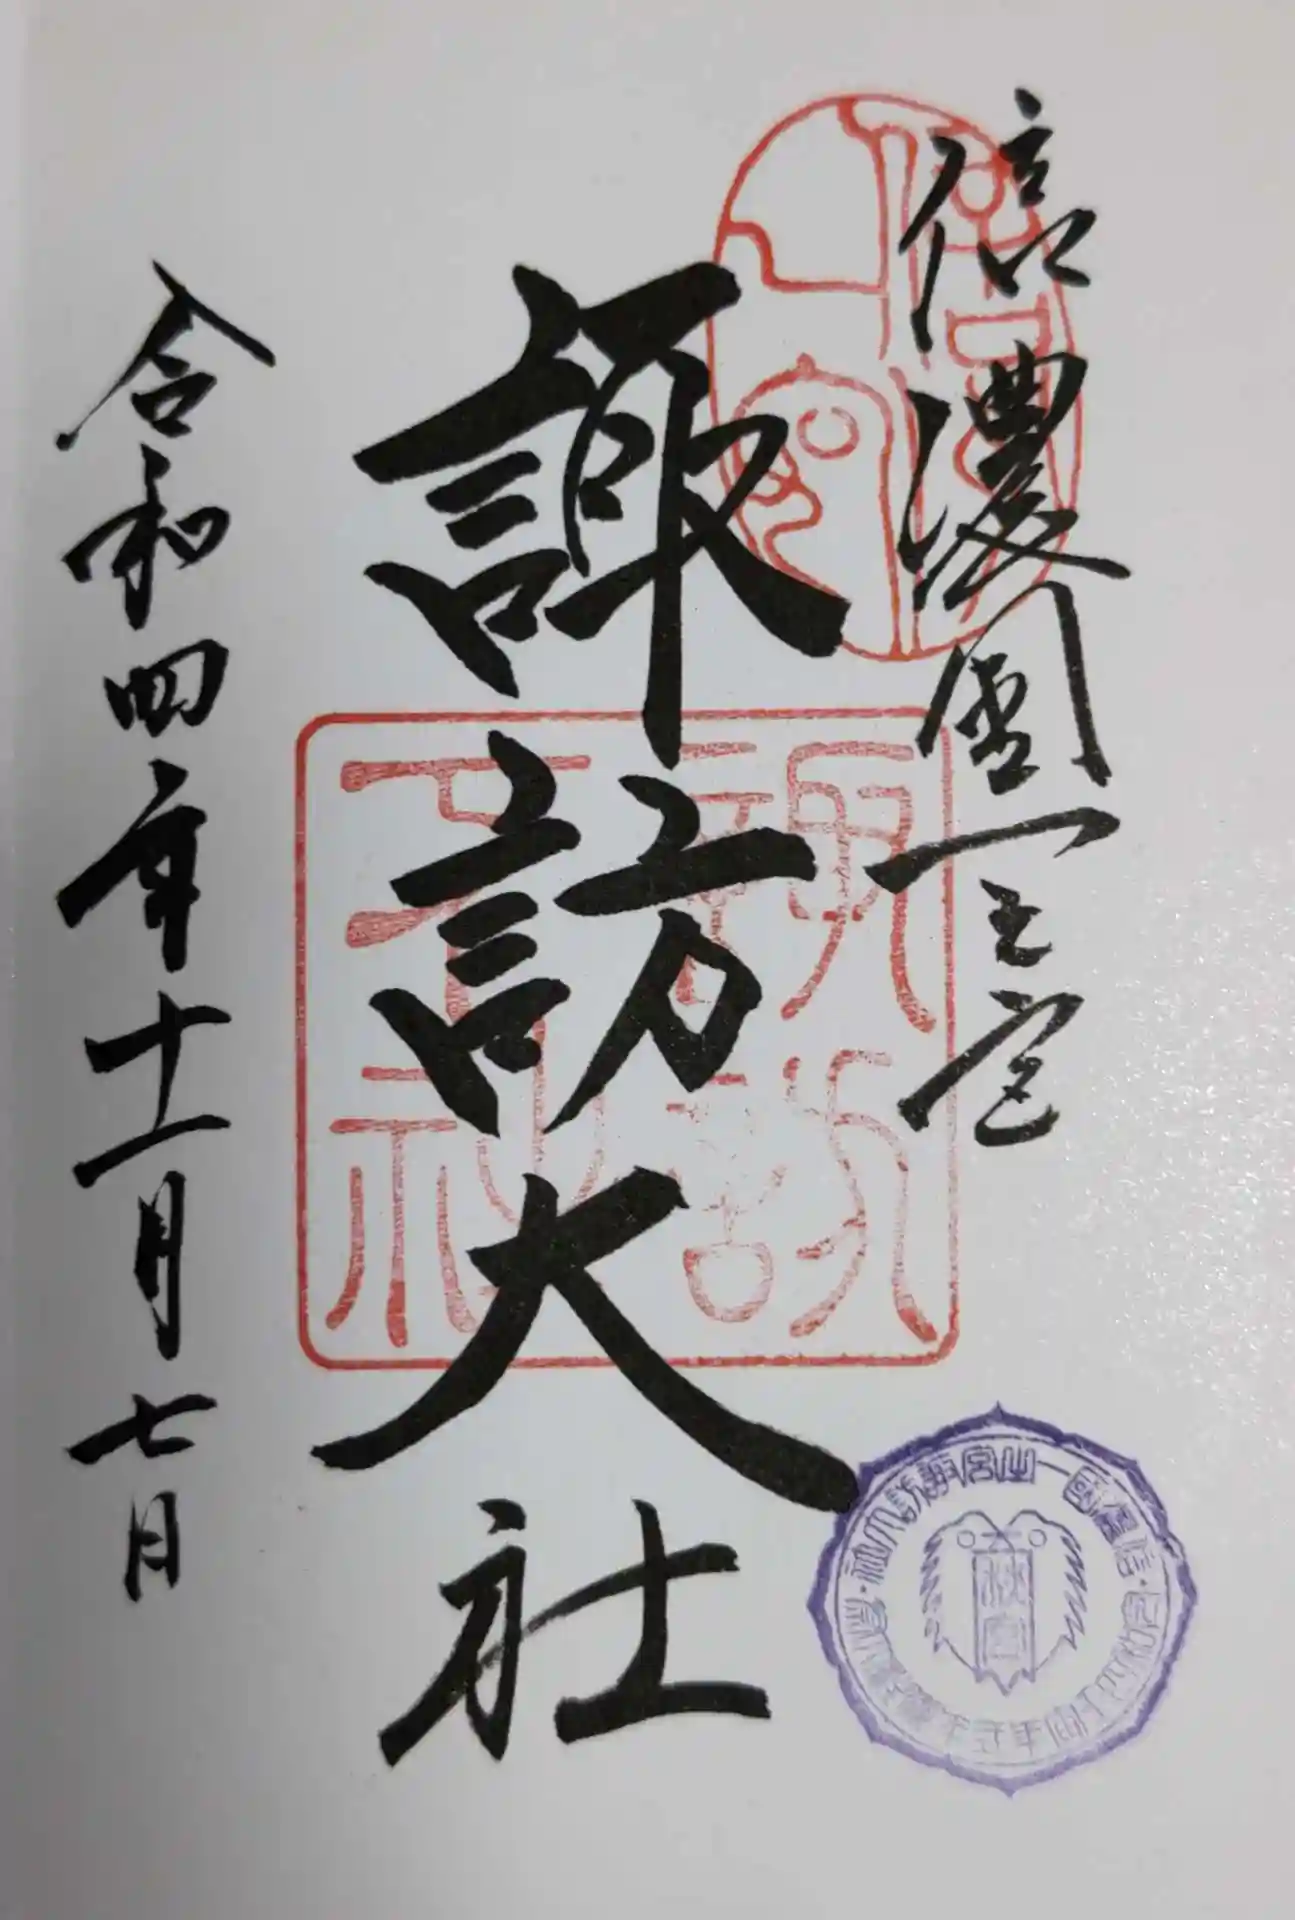 信濃國一之宮
諏訪大社
令和四年十一月七日
信濃國一之宮諏訪大社
秋宮